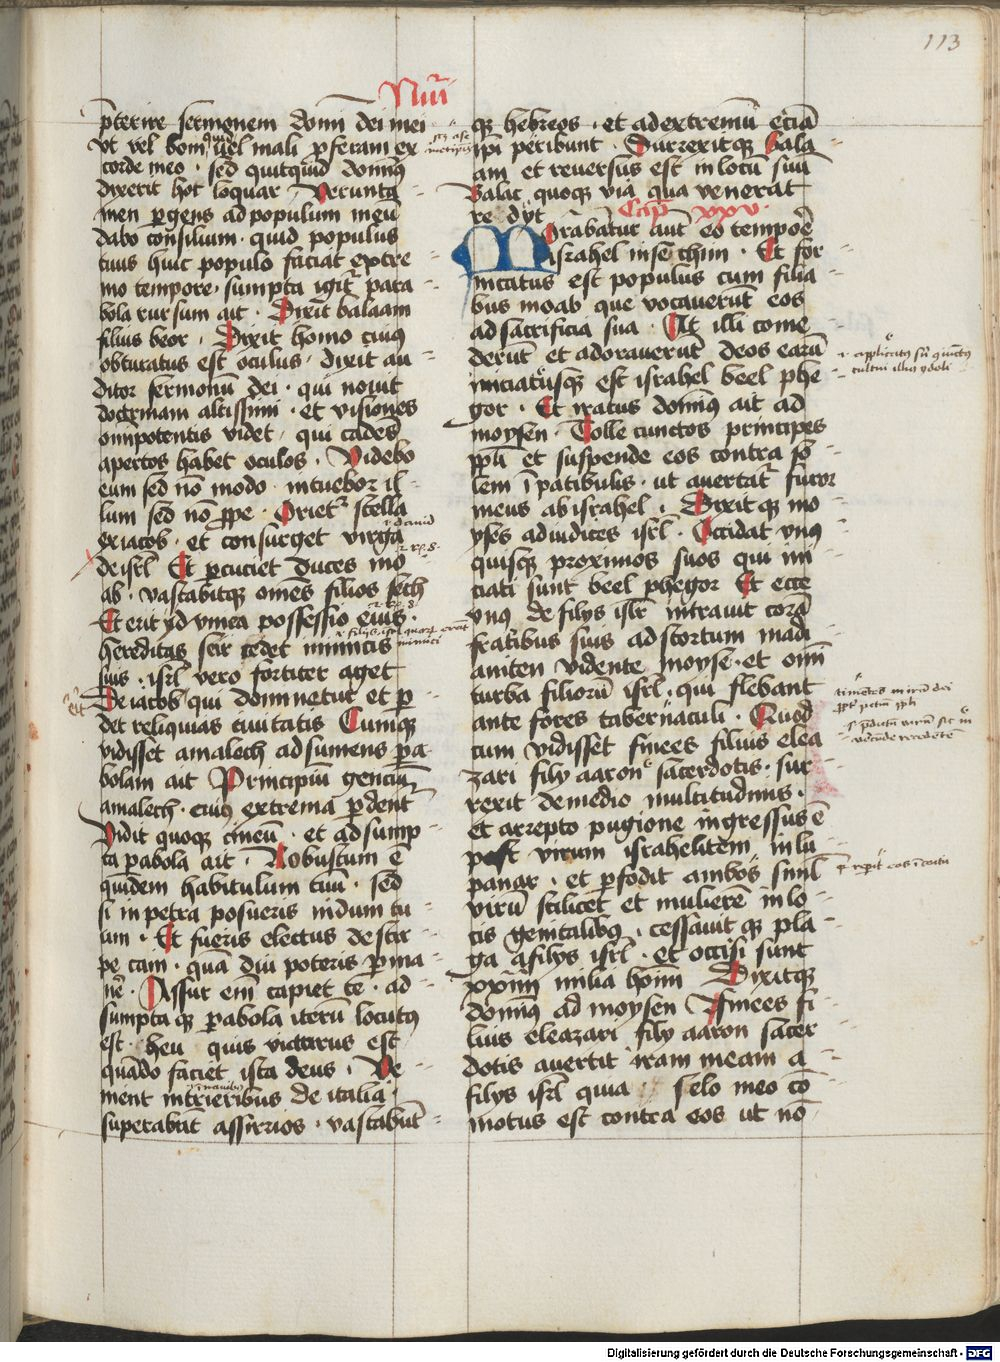 113
Nūi
p̄terire sermonem domī dei mei
vt vel bonū quid uel mali p̱feram ex
corde meo · sed quitquid domin9
dixerit hoc loquar · Verunta
men p̱gens ad populum meū
dabo consilium · quid populus
tuus huic populo faciat extre
mo tempore · sumpta igit᷑ para
bola rursum ait · Dixit balaam
filius beor · Dixit homo cui9
obturatus est oculus · dixit au
ditor sermonū dei · qui nouit
doctrinam altissimi · et visiones
omnipotentis videt · qui cadēs
apertos habet oculos · Videbo
eum sed nō modo · intuebor il
lum sed nō ꝓpe · Oriet᷑ stella
ex iacob · et consurget virga
de isrl̄ Et p̱cuciet duces mo
ab · vastabitqꝫ omēs filios seth
Et erit ydumea possessio eius ·
hereditas seir cedet inimicis
suis · isrl̄ vero fortiter aget
De iacob qui dominetur et p̱
det reliquias ciuitatis Cumqꝫ
vidisset amalech adsumens pa
bolam ait Principiū genciū
amalech · cui9 extrema p̱dent᷑
Vidit quoqꝫ cineū · et adsump
ta parabola ait · Robustum ē
quidem habitulum tuū · sed
si in petra posueris nidum tu
um · Et fueris electus de stir
pe cain · quā diu poteris p̱ma
nē · Assur em̄ capiet te · ad
sumpta qꝫ parabola iterū locut9
est · heu quis victurus est
quādo faciet ista deus · Ve
nient in trieribus de italia ·
superabūt assirios · vastabūt
qꝫ hebreos · et ad extremū eciā
ipī peribunt · Surrexitqꝫ bala
am et reuersus est in locū suū
Balac quoqꝫ via qua venerat
redijt Cap̄ xxv ·
Morabatur aūt eo tempoē
israhel in sethim · Et for
nicatus est populus cum filia
bus moab que vocauerūt eos
ad sacrificia sua · At illi come
derūt et adorauerūt deos earū
iniciatusqꝫ est israhel beel phe
gor · Et iratus domin9 ait ad
moysen · Tolle cunctos principes
ppl̄i et suspende eos contra so
lem ī patibulis · ut auertat᷑ furor
meus ab israhel · Dixitqꝫ mo
yses ad iudices isrl̄ · Occidat vn9
quisqꝫ proximos suos qui ini
ciati sunt beel phegor Et ecce
vn9 de filijs isrl̄ intrauit corā
fratribus suis ad scortum madi
aniten vidente moyse · et omī
turba filiorū isrl̄ · qui flebant
ante fores tabernaculi · Quod
cum vidisset finees filius elea
zari filij aaron sacerdotis · sur
rexit de medio multitudinis ·
et arrepto pugione ingressus ē
post virum israhelitem in lu
panar · et p̱fodit ambos simul
virū scilicet et mulierē in lo
cis genitalib9 · cessauit qꝫ pla
ga a filijs isrl̄ · et occisi sunt
xxiiii milia hom̄ Dixitqꝫ
domin9 ad moysen Finees fi
lius eleazari filij aaron sacer
dotis auertit iram meam a
filijs isrl̄ quia · selo meo cō
motus est contra eos ut nō
Digitalisierung gefördert durch die Deutsche Forschungsgemeinschaft - DFG